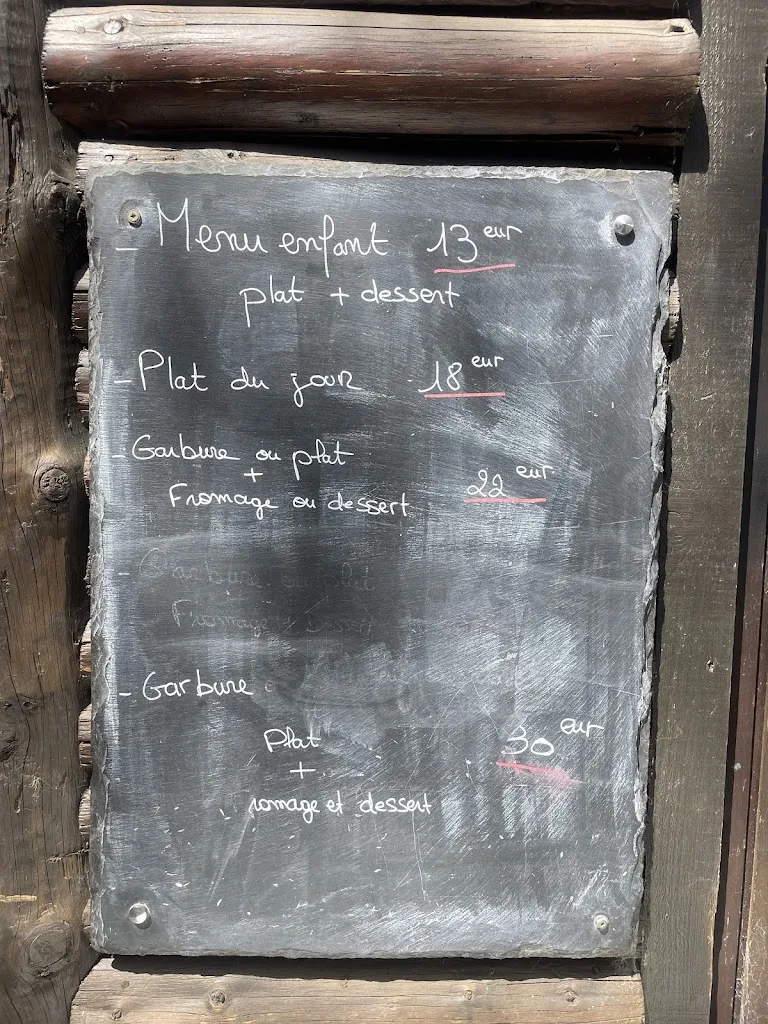 - Menu enfant 13 eur
plat + dessert
- Plat du jour 18 eur
- Garbure ou plat
+
Fromage ou dessert 22 eur
- Garbure ou plat
Fromage + dessert
- Garbure
Plat 30 eur
+
romage et dessert